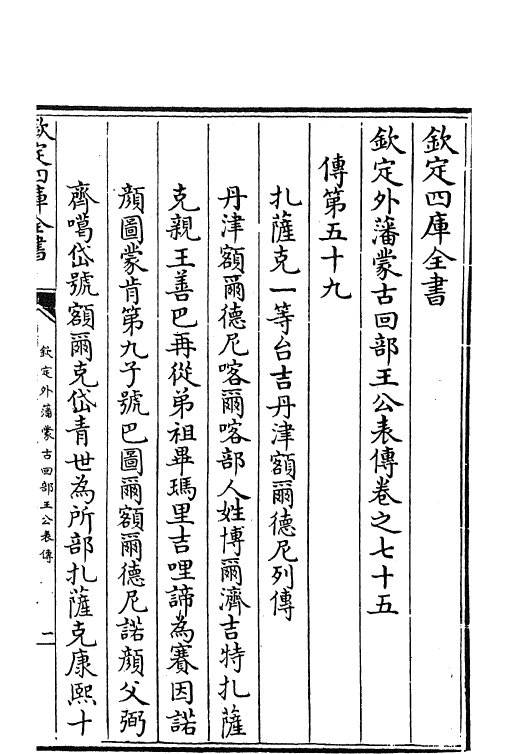 欽定四庫全書
欽定外藩蒙古回部王公表傳卷之七十五
傳第五十九
扎薩克一等台吉丹津額爾德尼列傳
丹津額爾德尼喀爾喀部人姓博爾濟吉特扎薩
克親王善巴再從弟祖畢瑪里吉哩諦為賽因諾
顏圖蒙肯第九子號巴圖爾額爾德尼諾顏父弻
齊噶岱號額爾克岱青世為所部扎薩克康熙十
欽定四庫全書
欽定外藩蒙古回部王公表傳
一